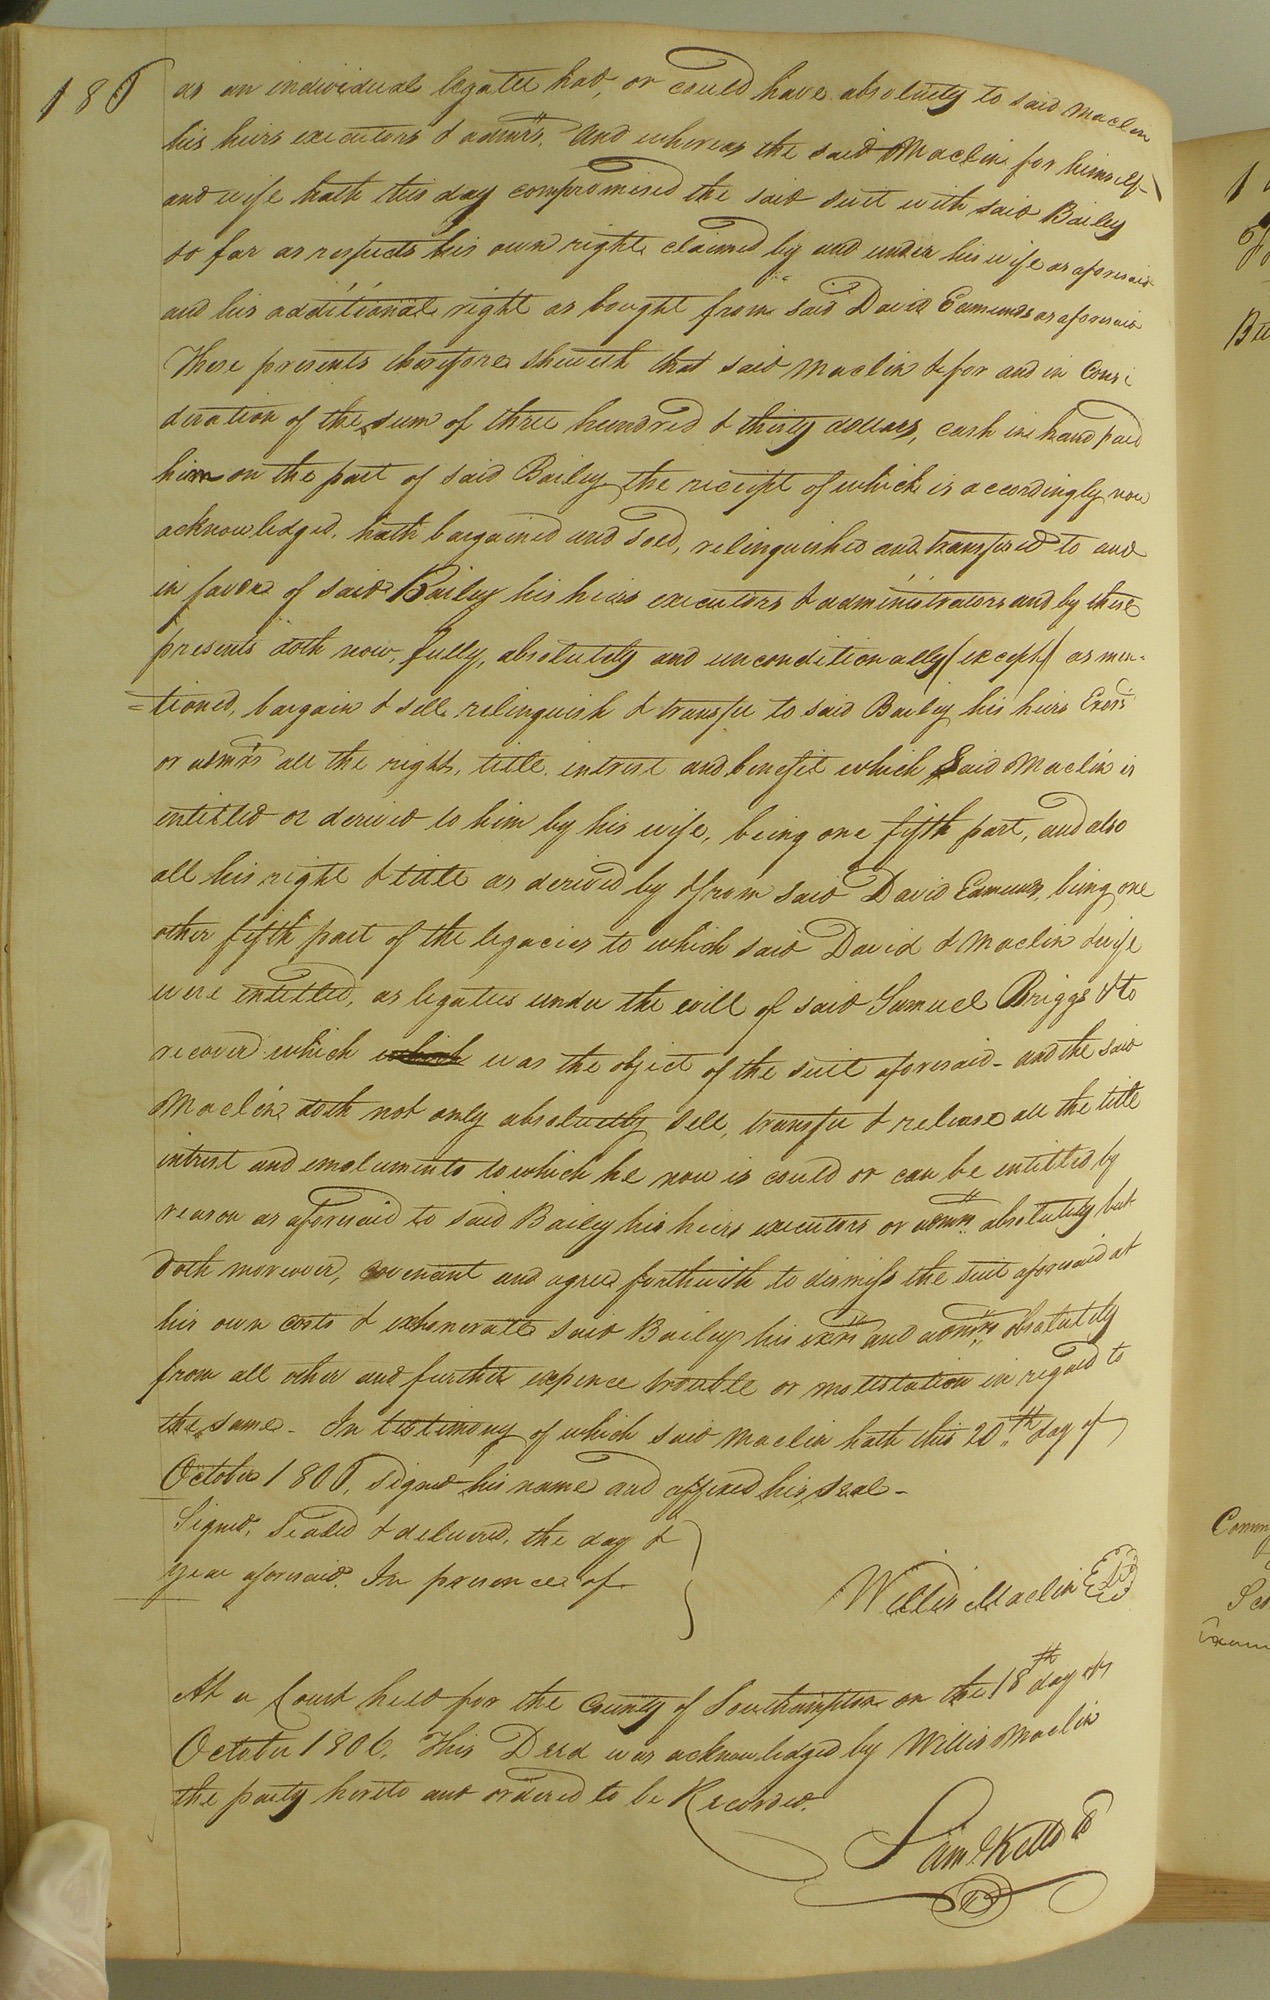 186
as an individual legatee had, or could have absolutely to said Maclin
his heirs executors & admrs. And whereas the said Maclin for himself
and wife hath this day compromised the said suit with said Bailey
so far as respects his own right claimed by and under his wife as aforesaid
and his additional right as bought from said David Edmunds as aforesaid
These presents therefore sheweth that said Maclin & for and in Consi
deration of the sum of three hundred & thirty dollars, cash in hand paid
him on the part of said Bailey the receipt of which is accordingly now
acknowledged, hath bargained and sold, relinquished and transfered to and
in favor of said Bailey his heirs executors & administrators and by these
presents doth now, fully, absolutely and unconditionally (except) as men-
=tioned, bargain & sell relinquish & transfer to said Bailey his heirs Exors
or admrs all the right, title, intrest and benefit which said Maclin is
entitled or derived to him by his wife, being one fifth part, and also
all his right & title as derived by & from said David Edmunds, being one
other fifth part of the legacies to which said David & Maclin & wife
were entitled, as legatees under the will of said Samuel Briggs & to
recover which was the object of the suit aforesaid - and the said
Maclin doth not only absolutely sell, transfer & release all the title
intrest and emoluments to which he now is could or can be entitled by
reason as aforesaid to said Bailey his heirs executors or admrs absolutely but
doth moreover, covenant and agree forthwith to dismiss the suit aforesaid at
his own costs & exhonerate said Bailey his exrs and admrs absolutely
from all other and further expence trouble or molestation in regard to
the same - In testimony of which said Maclin hath this 20th day of
October 1806, signed his name and affixed his seal -
Signed, Sealed & delivered, the day &
year aforesaid. In presence of
Willis Maclin
At a Court held for the County of Southampton on the 18th day of
October 1806. This Deed was acknowledged by Willis Maclin
the party hereto and ordered to be Recorded.
Saml Kello